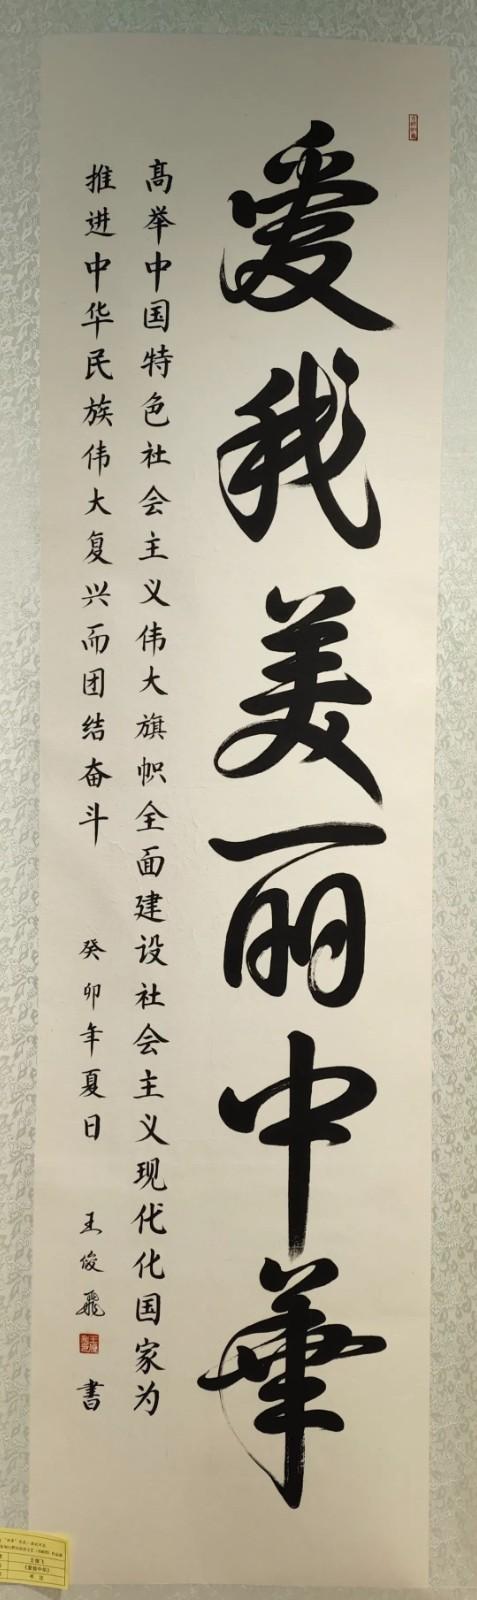 爱我美丽中華
高举中国特色社会主义伟大旗帜全面建设社会主义现代化国家为
推进中华民族伟大复兴而团结奋斗 癸卯年夏日 王俊飛 書